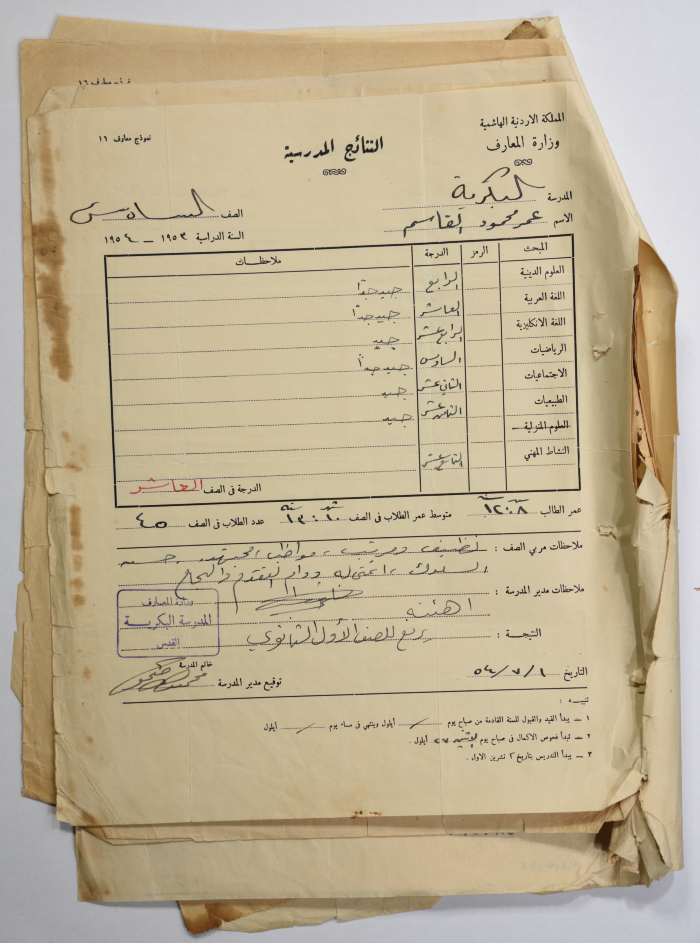 ق.ـ معارف ١٦
المملكة الاردنية الهاشمية
وزارة المعارف
نموذج معارف ١٦
النتائج المدرسية
المدرسة البكرية
الاسم عمر محمود القاسم
الصف السادس
السنة الدراسية ١٩٥٣ ــ ١٩٥٤
المبحث الرمز الدرجة ملاحظات
العلوم الدينية الرابع جيد جدًا
اللغة العربية العاشر جيد جدًا
اللغة الانكليزية الرابع عشر جيد
الرياضيات السادس جيد جدًا
الاجتماعيات الثاني عشر جيد
الطبيعيات الثامن عشر جيد
العلوم المنزلية
النشاط المهني التاسع عشر
الدرجة في الصف العاشر
عمر الطالب ١٢:٨ متوسط عمر الطلاب في الصف ١٣:١٠ عدد الطلاب في الصف ٤٥
ملاحظات مربي الصف : نظيف ومرتب، مواظب، مجتهد، حسن
السلوك، اتمنى له دوام التقدم والنجاح
ملاحظات مدير المدرسة :
اهنئه
النتيجة : يرفع للصف الأول الثانوي
وزارة المعارف
المدرسة البكرية
القدس
خاتم المدرسة
التاريخ ٥٤/٧/١
توقيع مدير المدرسة
تنبيه :
١ ــ يبدأ القيد والقبول للسنة القادمة من صباح يوم / أيلول وينتهي في مساء يوم / أيلول
٢ ــ تبدأ فحوص الاكمال في صباح يوم الاثنين ٢٧ أيلول .
٣ ــ يبدأ التدريس بتاريخ ٢ تشرين الاول .